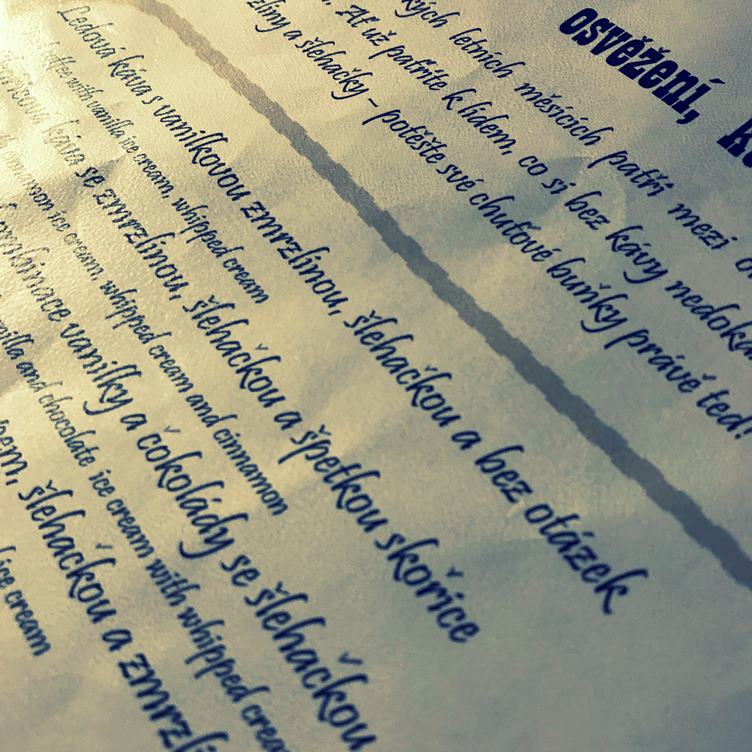 osvěžení,
kých letních měsících patří mezi
Ať už patříte k lidem, co si bez kávy nedoká
zliny a šlehačky – potěšte své chuťové buňky právě teď!
Ledová káva s vanilkovou zmrzlinou, šlehačkou a bez otázek
coffee with vanilla ice cream, whipped cream
káva se zmrzlinou, šlehačkou a špetkou skořice
ice cream, whipped cream and cinnamon
kombinace vanilky a čokolády se šlehačkou
vanilla and chocolate ice cream with whipped crea
šlehačkou a zmrzli
ice cream